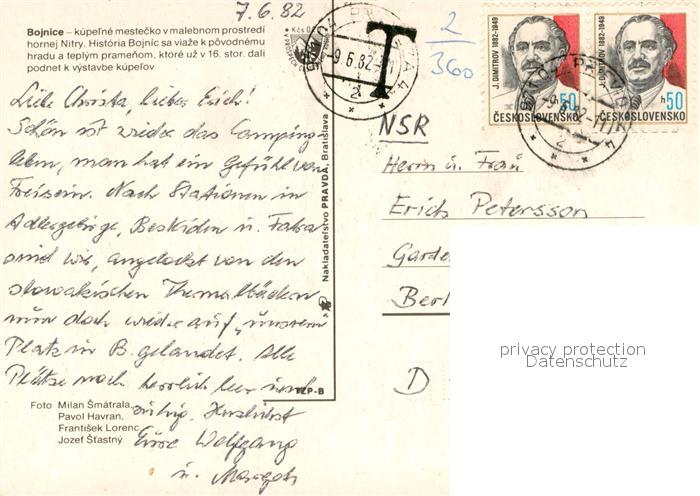 7.6.82
Bojnice – kúpeľné mestečko v malebnom prostredí
hornej Nitry. História Bojníc sa viaže k pôvodnému
hradu a teplým prameňom, ktoré už v 16. stor. dali
podnet k výstavbe kúpeľov
Liebe Christa, lieber Erich!
Schön ist wieder das Camping-
leben, man hat ein Gefühl von
Freisein. Nach Stationen in
Adlergebirge, Beskiden u. Fatra
sind wir, angelockt von den
slowakischen Thermalbädern
nun doch wieder auf unserem
Platz in B. gelandet. Alle
Plätze noch herrlich leer und
ruhig. Herzlichst
Eure Wolfgang
u. Margot
Foto Milan Šmátrala,
Pavol Havran,
František Lorenc,
Jozef Šťastný
TZP-B
Nakladateľstvo PRAVDA, Bratislava
Kčs
-9.6.82
2
T
2
360
J. DIMITROV 1882-1949
h 50
ČESKOSLOVENSKO
J. DIMITROV 1882-1949
h 50
ČESKOSLOVENSKO
2
NSR
Herrn u. Frau
Erich Petersson
Garde
Berl
D
privacy protection
Datenschutz